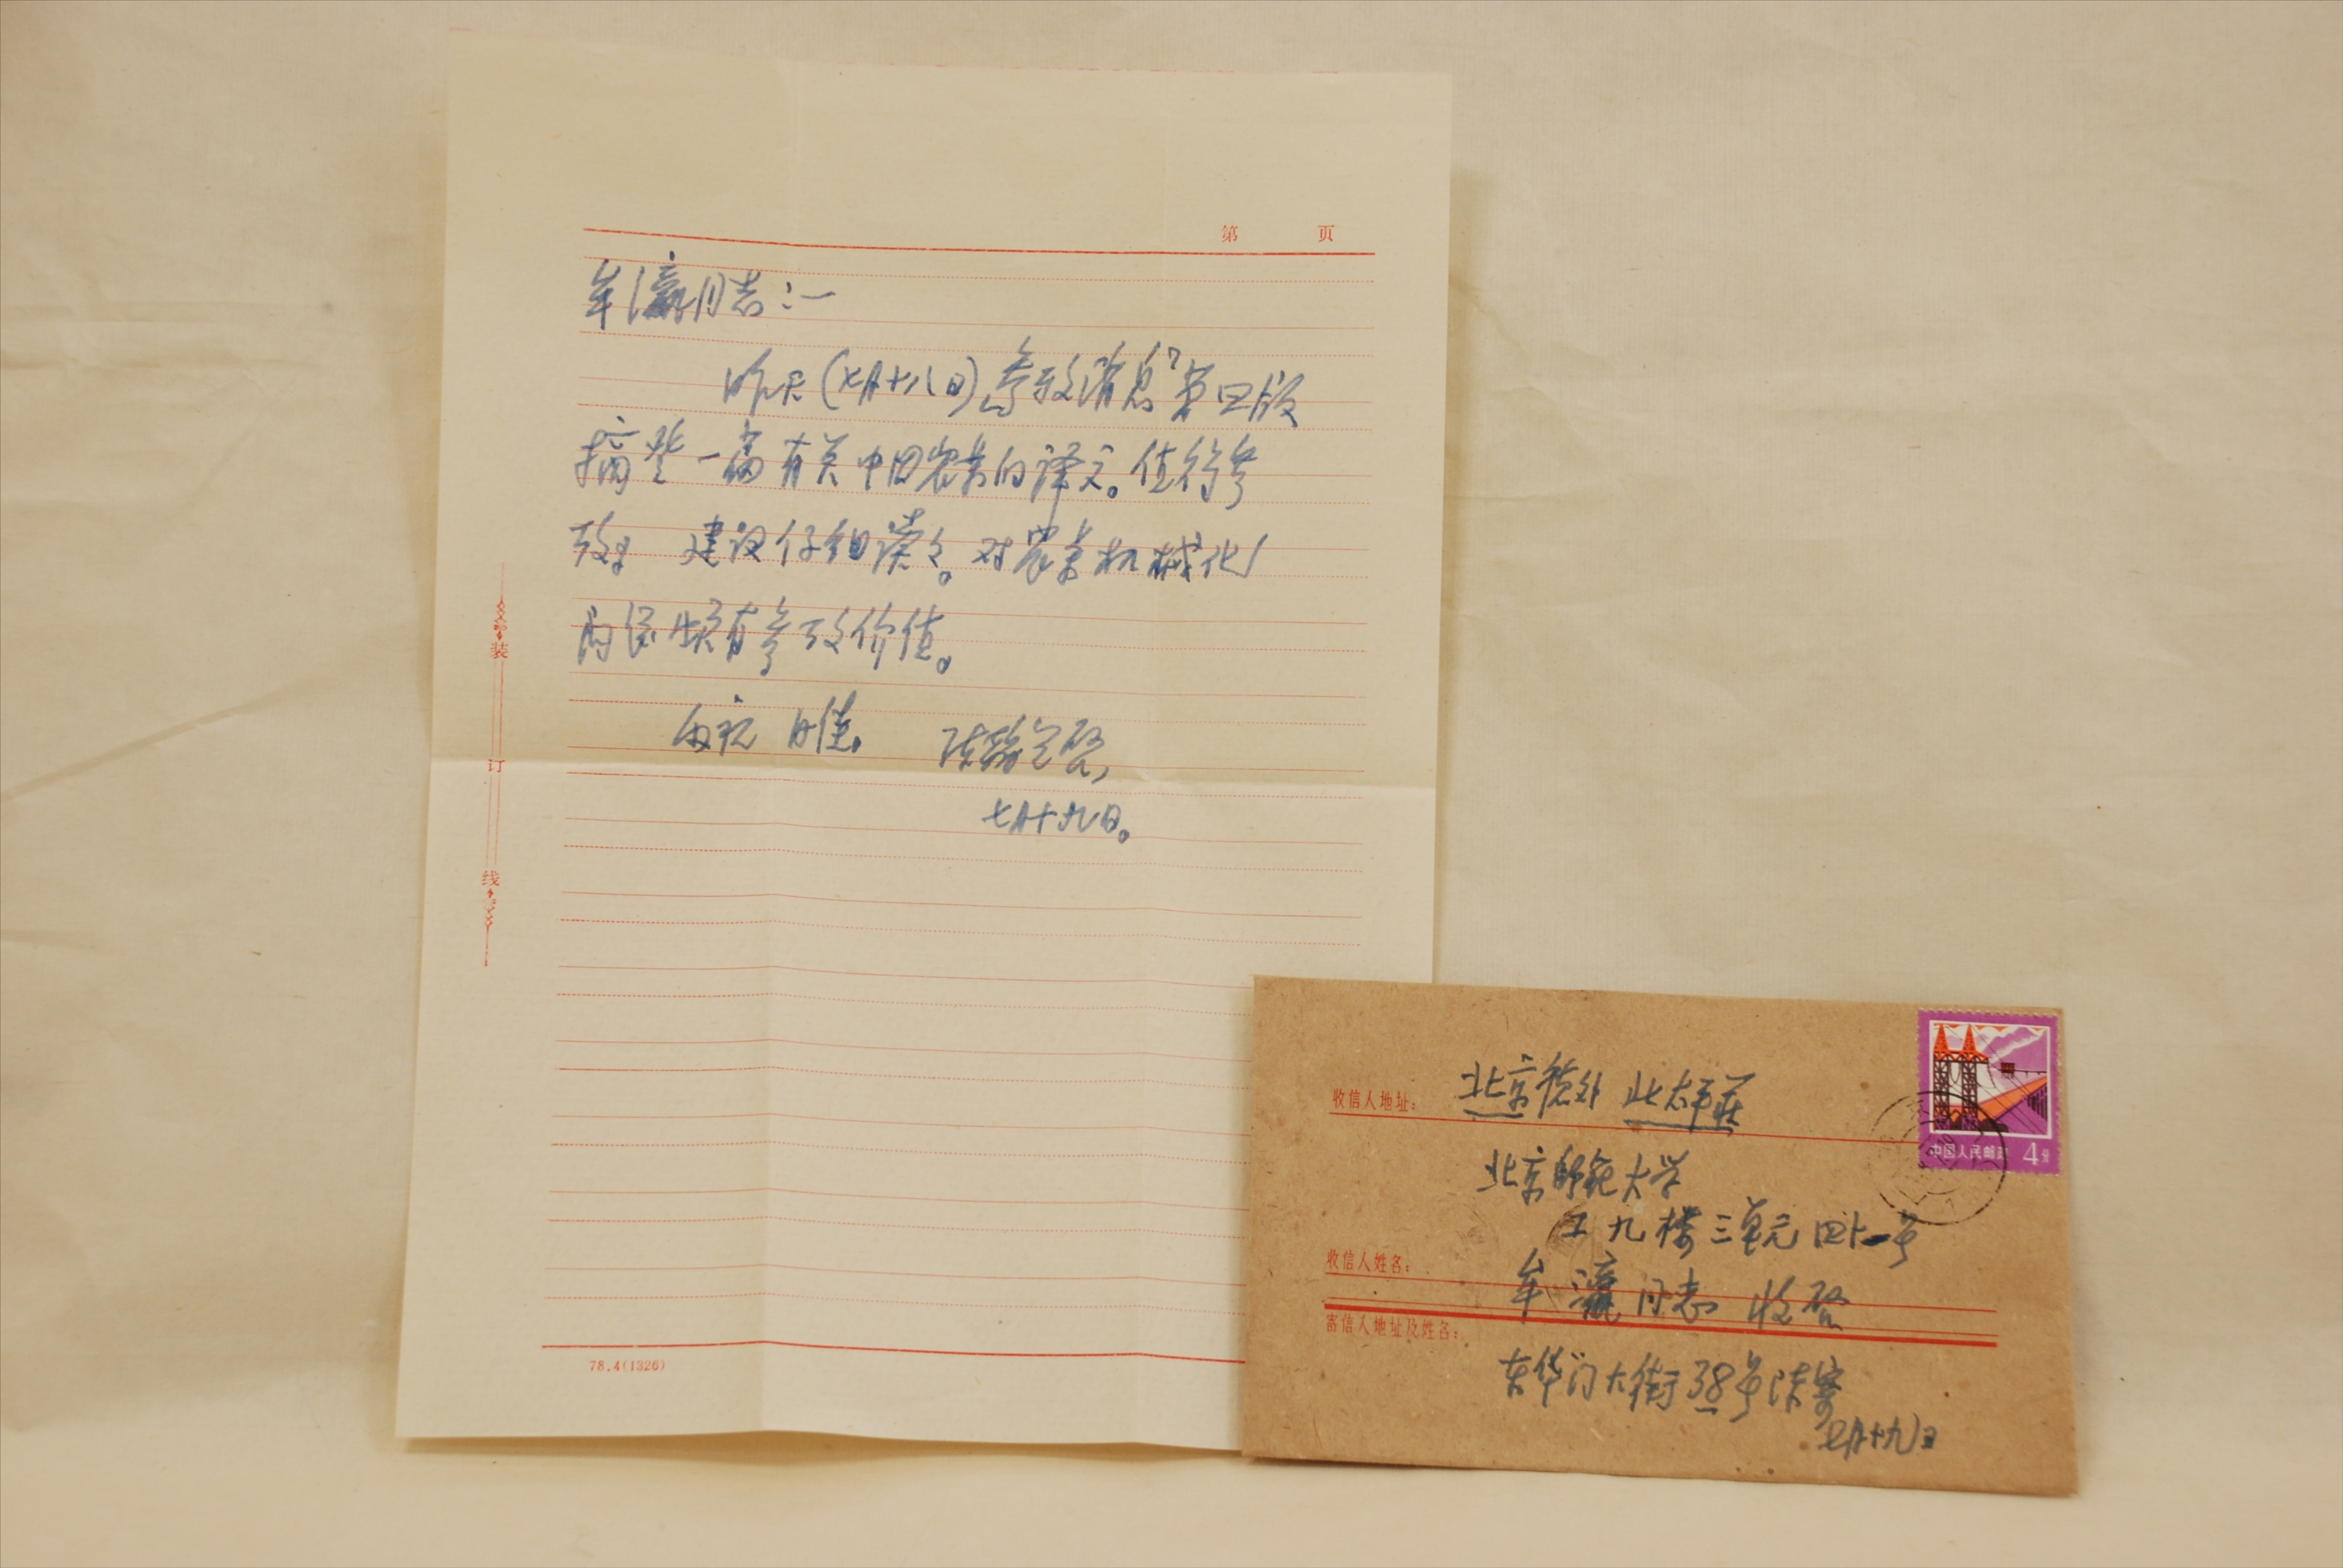 第 页
牟瀛同志:—
昨天(七月十八日)"参考消息"第四版
摘登一篇有关中国农业的译文。值得参
考。建议仔细读々。对农业机械化
问题颇有参考价值。
即祝 日佳。 陈翰笙启,
七月十九日。
装
订
线
78.4(1326)
中国人民邮政 4分
收信人地址: 北京德外 北太平庄
北京师范大学
工九楼三单元四十一号
收信人姓名: 牟瀛同志 收启
寄信人地址及姓名:
东华门大街38号陈寄
七月十九日